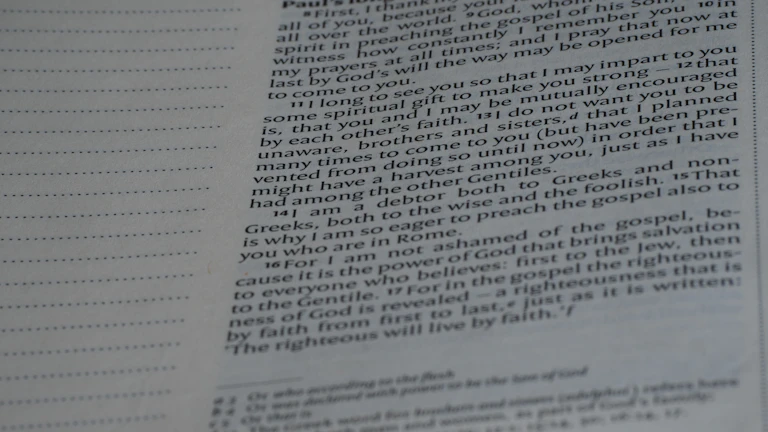 Paul's
8First, I thank
all of you, because your
all over the world. 9God, whom
spirit in preaching the gospel of his Son,
witness how constantly I remember you 10in
my prayers at all times; and I pray that now at
last by God's will the way may be opened for me
to come to you.
11I long to see you so that I may impart to you
some spiritual gift to make you strong – 12that
is, that you and I may be mutually encouraged
by each other's faith. 13I do not want you to be
unaware, brothers and sisters,d that I planned
many times to come to you (but have been pre-
vented from doing so until now) in order that I
might have a harvest among you, just as I have
had among the other Gentiles.
14I am a debtor both to Greeks and non-
Greeks, both to the wise and the foolish. 15That
is why I am so eager to preach the gospel also to
you who are in Rome.
16For I am not ashamed of the gospel, be-
cause it is the power of God that brings salvation
to everyone who believes: first to the Jew, then
to the Gentile. 17For in the gospel the righteous-
ness of God is revealed – a righteousness that is
by faith from first to last,e just as it is written:
'The righteous will live by faith.'f
a 3 Or who according to the flesh
b 4 Or was declared with power to be the Son of God
c 5 Or that is
The Greek word for brothers and sisters (adelphoi) refers here
and women, as part of God's family;